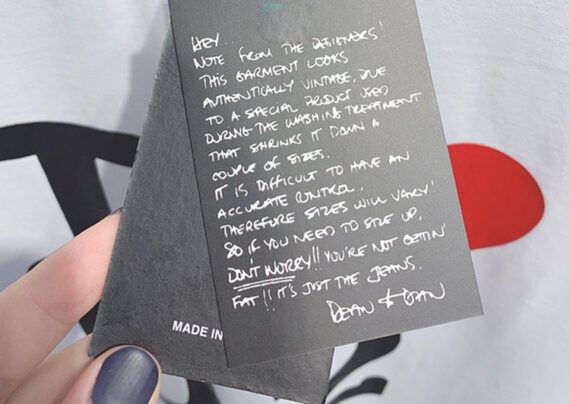 HEY...
NOTE FROM THE DESIGNERS!
THIS GARMENT LOOKS
AUTHENTICALLY VINTAGE, DUE
TO A SPECIAL PRODUCT USED
DURING THE WASHING TREATMENT
THAT SHRINKS IT DOWN A
COUPLE OF SIZES.
IT IS DIFFICULT TO HAVE AN
ACCURATE CONTROL.
THEREFORE SIZES WILL VARY!
SO IF YOU NEED TO SIZE UP,
DON'T WORRY!! YOU'RE NOT GETTIN'
FAT!! IT'S JUST THE JEANS.
DEAN & DAN
MADE IN